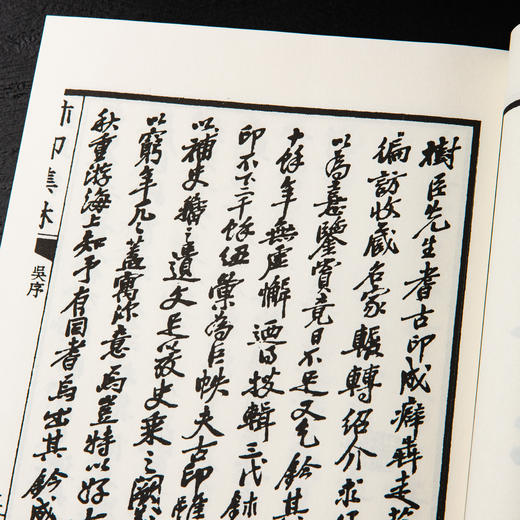 樹臣先生耆古印成癖犇走於
徧訪收藏名家輾轉紹介求
以為意鑒賞竟日不足又乞鈐其
十餘年無虛懈迺得拔輯三代鉨
印不下二千餘鈕彙為巨帙夫古印雖
以補史籍之遺文足發史乘之闕
以窮年兀兀蓋寓深意焉豈特以好
秋重游海上知予有同耆焉出其鈐成
印集林
吳序